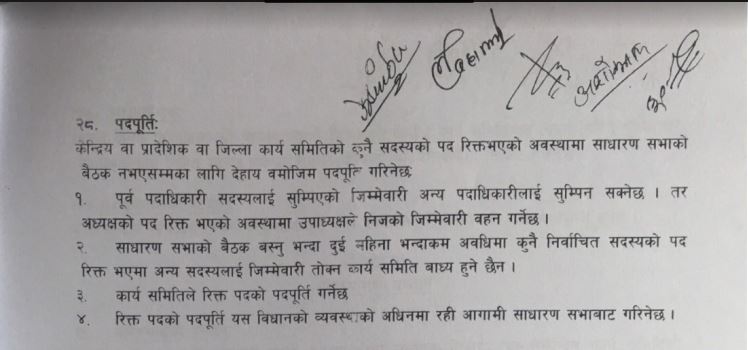 २८. पदपूर्तिः
केन्द्रिय वा प्रादेशिक वा जिल्ला कार्य समितिको कुनै सदस्यको पद रिक्तभएको अवस्थामा साधारण सभाको
बैठक नभएसम्मका लागि देहाय वमोजिम पदपूर्ति गरिनेछ
१. पूर्व पदाधिकारी सदस्यलाई सुम्पिएको जिम्मेवारी अन्य पदाधिकारीलाई सुम्पिन सक्नेछ । तर
अध्यक्षको पद रिक्त भएको अवस्थामा उपाध्यक्षले निजको जिम्मेवारी वहन गर्नेछ ।
२. साधारण सभाको बैठक बस्नु भन्दा दुई महिना भन्दाकम अवधिमा कुनै निर्वाचित सदस्यको पद
रिक्त भएमा अन्य सदस्यलाई जिम्मेवारी तोक्न कार्य समिति बाध्य हुने छैन ।
३. कार्य समितिले रिक्त पदको पदपूर्ति गर्नेछ
४. रिक्त पदको पदपूर्ति यस विधानको व्यवस्थाको अधिनमा रही आगामी साधारण सभाबाट गरिनेछ ।